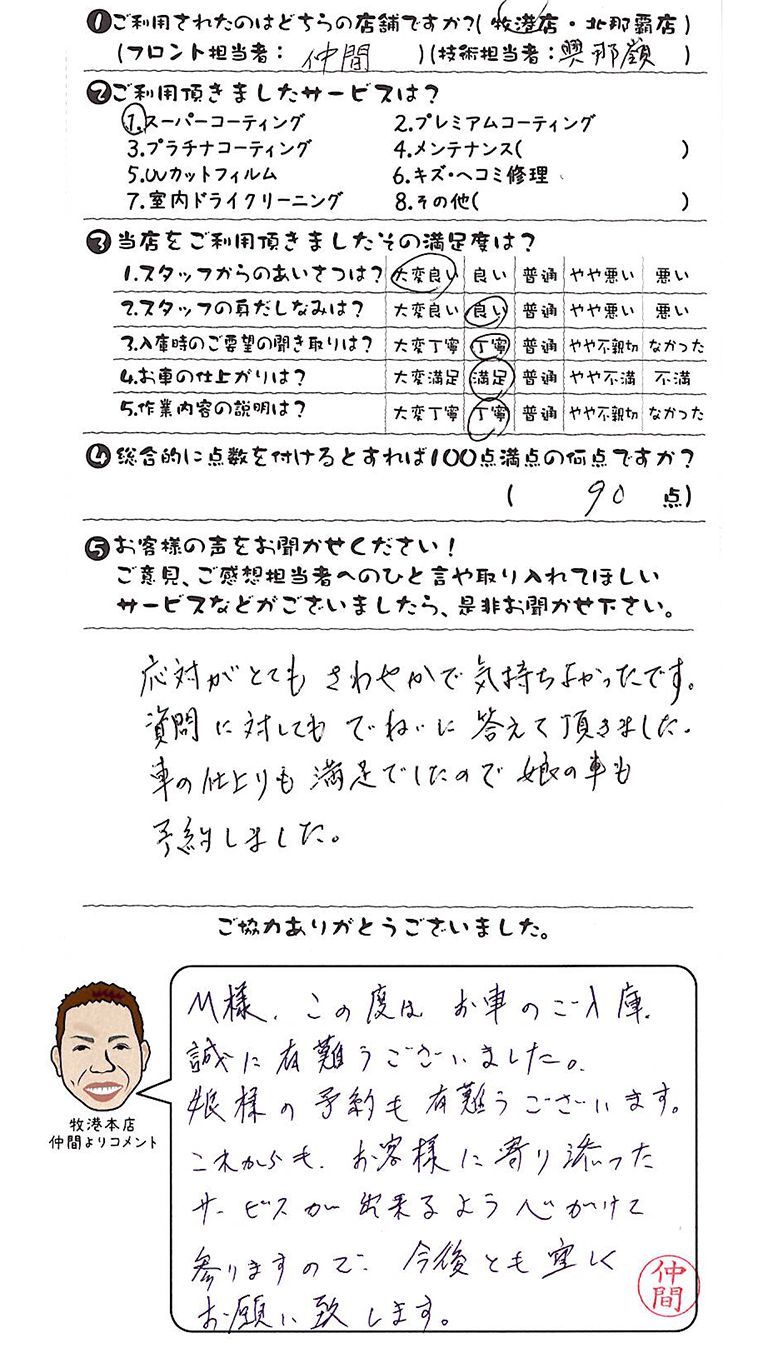 ❶ご利用されたのはどちらの店舗ですか?(牧港店・北那覇店)
(フロント担当者: 仲間 )(技術担当者: 與那嶺 )
❷ご利用頂きましたサービスは?
1.スーパーコーティング 2.プレミアムコーティング
3.プラチナコーティング 4.メンテナンス( )
5.UVカットフィルム 6.キズ・ヘコミ修理
7.室内ドライクリーニング 8.その他( )
❸当店をご利用頂きましたその満足度は?
1.スタッフからのあいさつは? 大変良い 良い 普通 やや悪い 悪い
2.スタッフの身だしなみは? 大変良い 良い 普通 やや悪い 悪い
3.入庫時のご要望の聞き取りは? 大変丁寧 丁寧 普通 やや不親切 なかった
4.お車の仕上がりは? 大変満足 満足 普通 やや不満 不満
5.作業内容の説明は? 大変丁寧 丁寧 普通 やや不親切 なかった
❹総合的に点数を付けるとすれば100点満点の何点ですか?
( 90 点)
❺お客様の声をお聞かせください!
ご意見、ご感想担当者へのひと言や取り入れてほしい
サービスなどがございましたら、是非お聞かせ下さい。
応対がとても さわやかで気持ちよかったです。
質問に対しても ていねいに 答えて頂きました。
車の仕上りも 満足でしたので 娘の車も
予約しました。
ご協力ありがとうございました。
M様、この度は お車のご入庫、
誠に有難うございました。
娘様の予約も有難うございます。
これからも、お客様に寄り添った
サービスが出来るよう心がけて
参りますので、今後とも宜しく
お願い致します。
仲間
牧港本店
仲間よりコメント